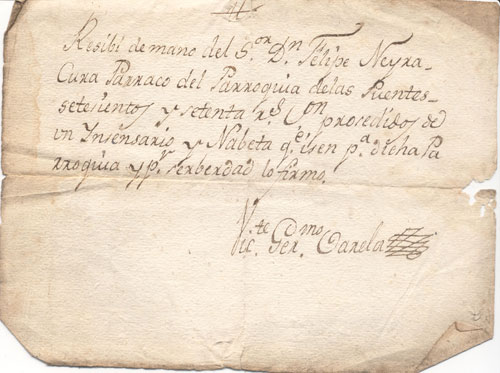 Resibí de mano del S.or D.n Felipe Neyra
Cura Parraco del Parroquia delas Puentes
setesientos y setenta r.s prosedidos de
vn Insensario y Nabeta q.e isen p.a dicha Pa
rroquia y p.r serberdad lo firmo.
Ger. Varela